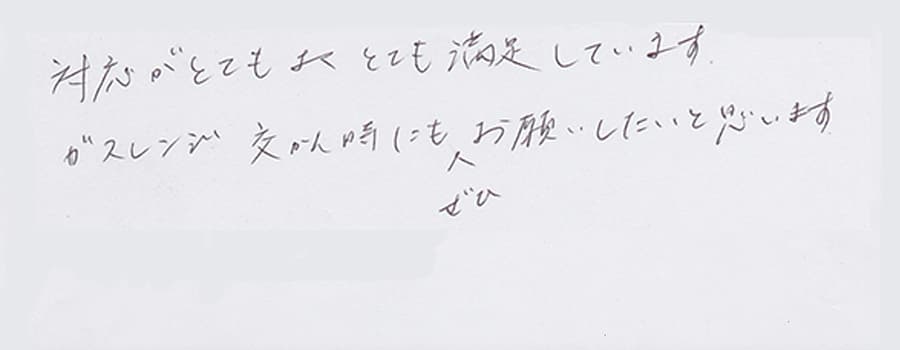 対応がとてもよくとても満足しています。
ガスレンジ交かん時にもお願いしたいと思います
ぜひ